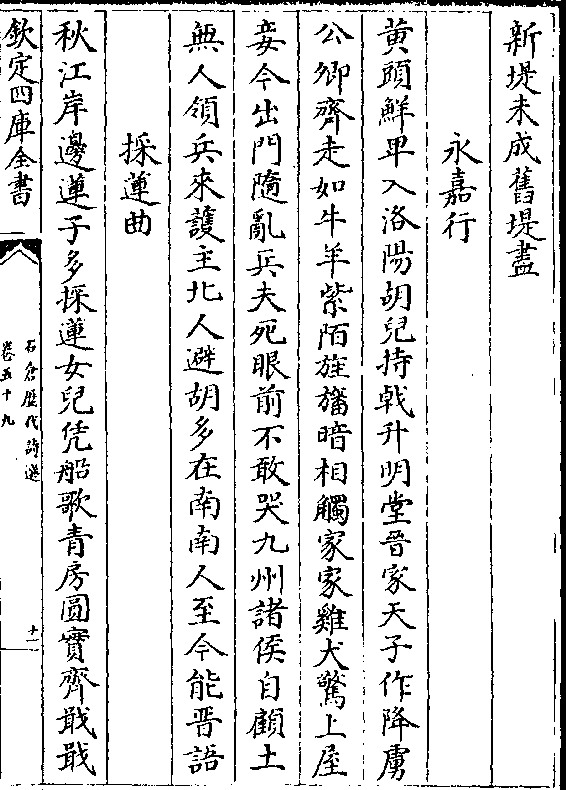 新堤未成舊堤盡
永嘉行
黄頭鮮卑入洛陽胡兒持戟升明堂晉家天子作降虜
公卿齊走如牛羊紫陌旌旛暗相觸家家雞犬驚上屋
妾今出門隨亂兵夫死眼前不敢哭九州諸侯自顧土
無人領兵來護主北人避胡多在南南人至今能晉語
採蓮曲
秋江岸邊蓮子多採蓮女兒凭船歌青房圓實齊戢戢
欽定四庫全書
石倉歷代詩選
卷五十九
十一